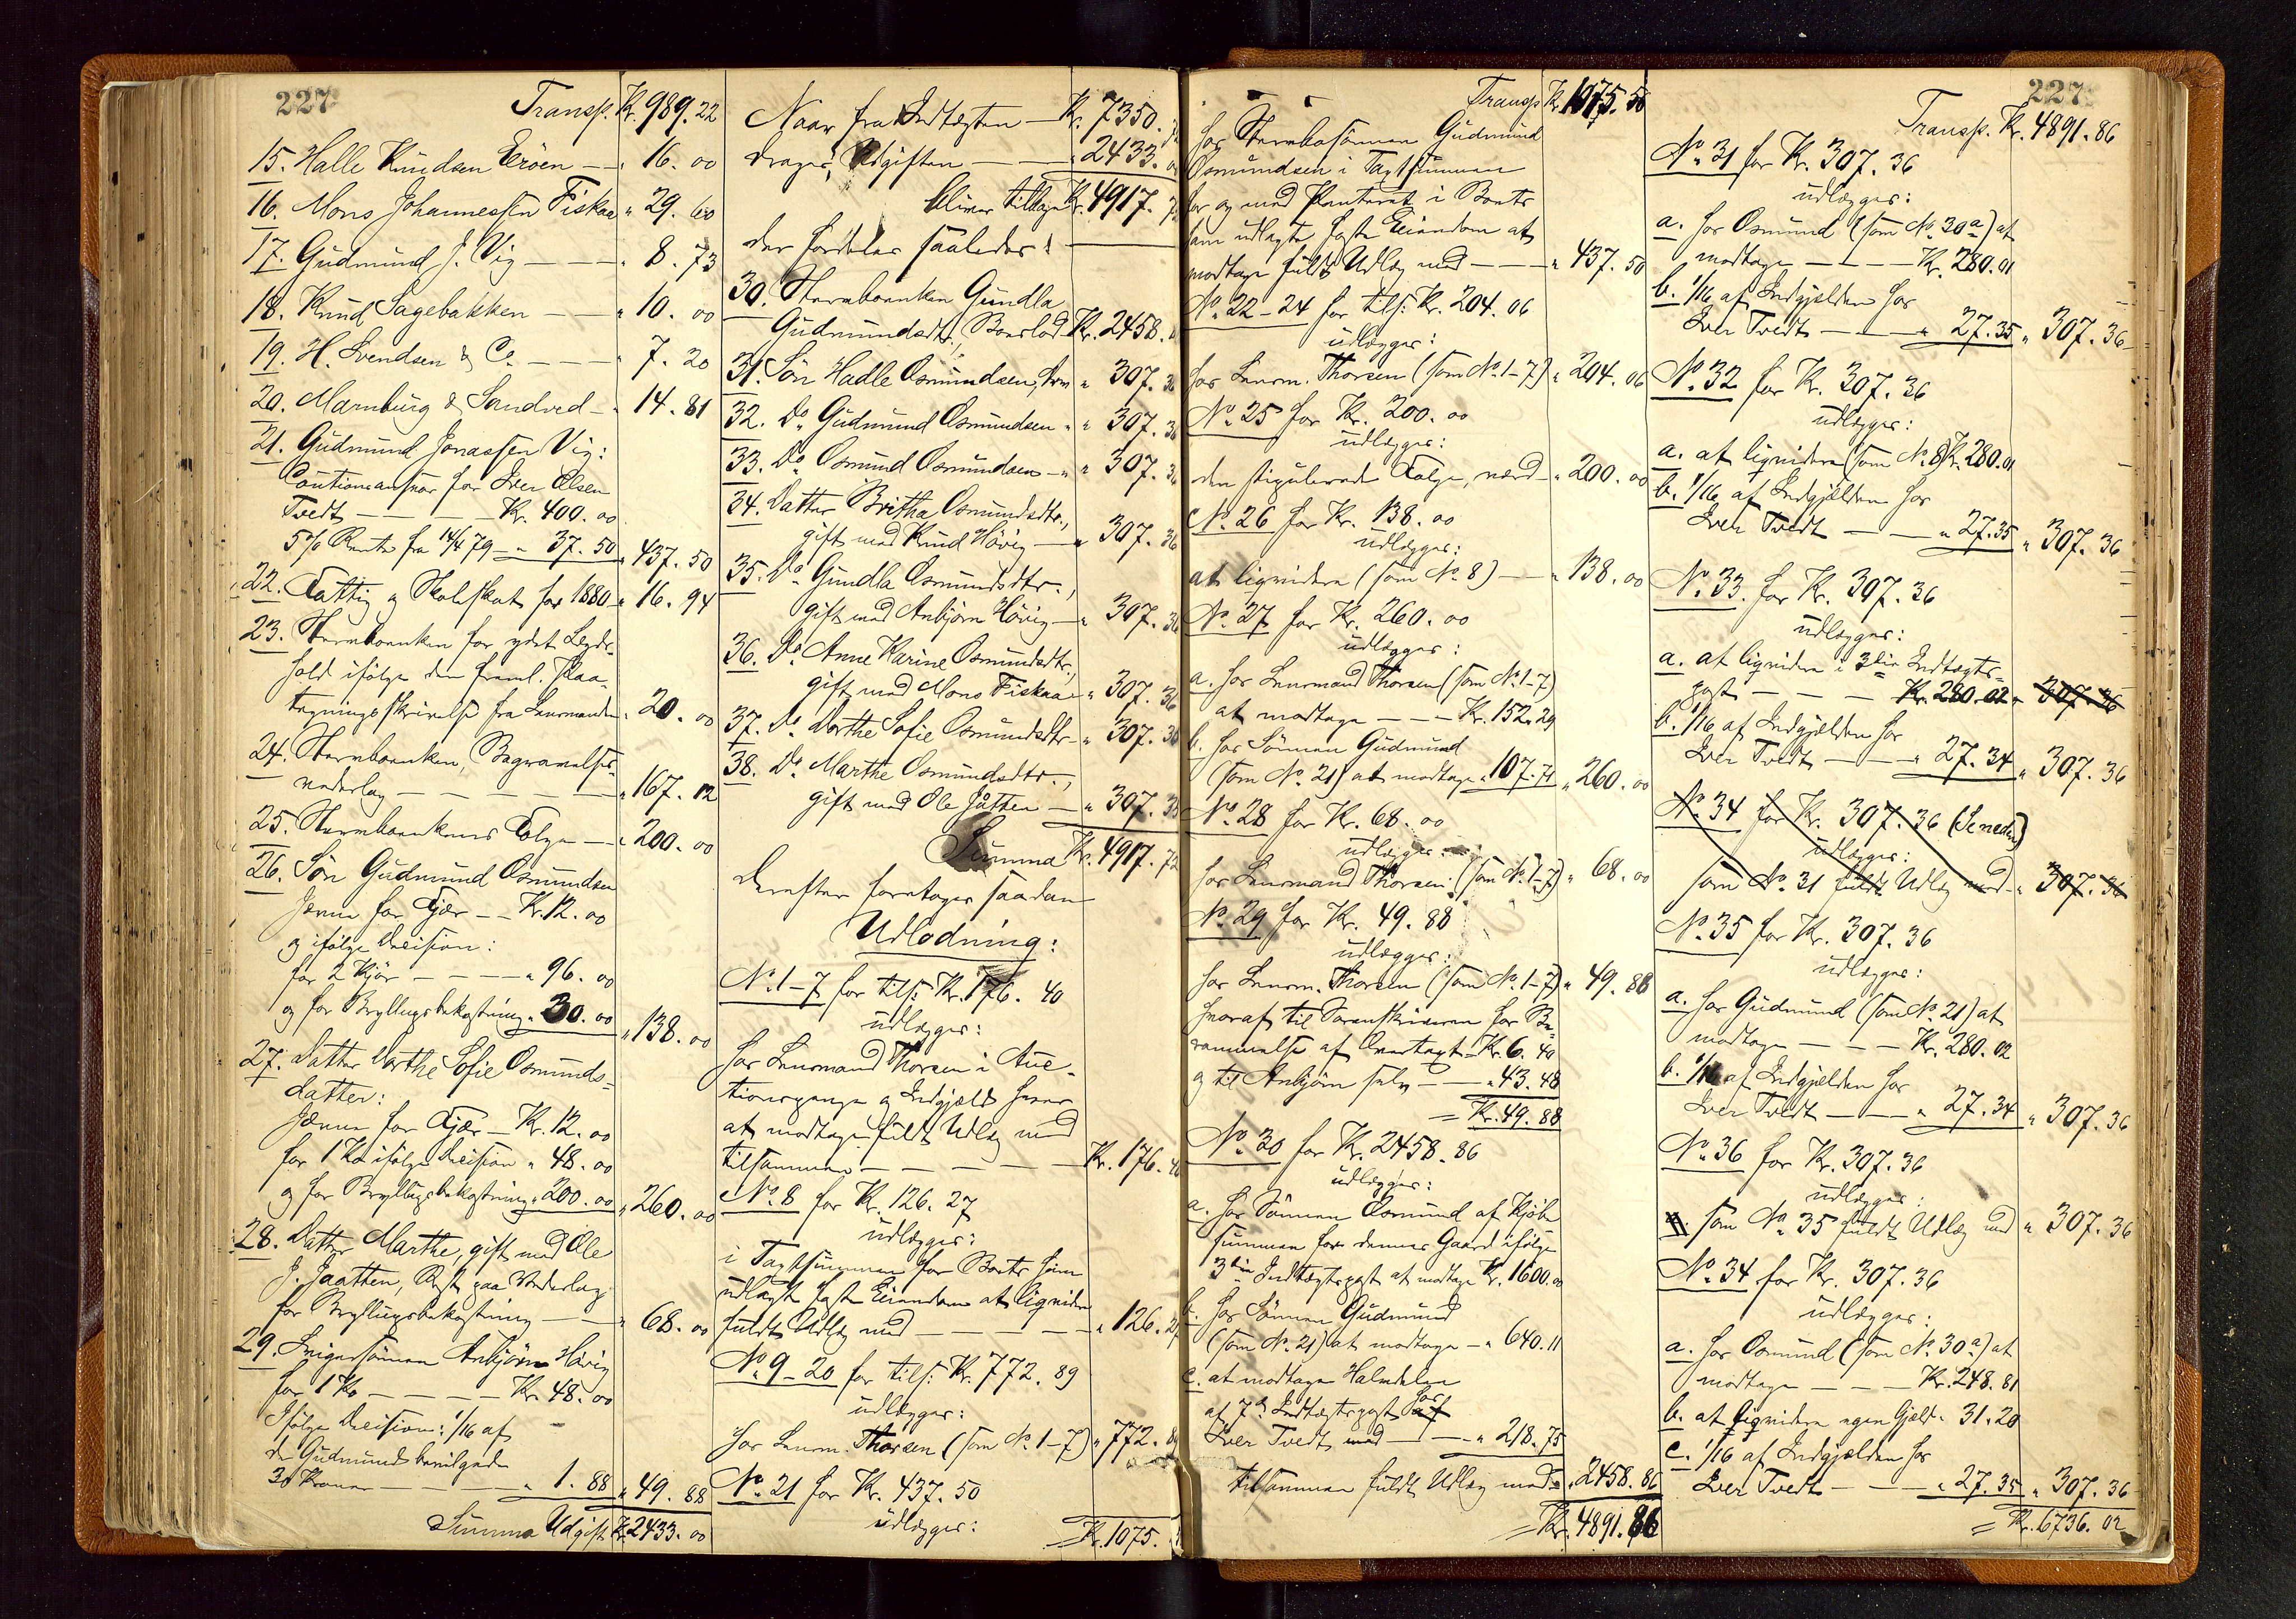 227
Transp. Kr. 989.22
15. Halle Knudsen Eröen — " 16.00
16. Mons Johannessen Fiskaa " 29.60
17. Gudmund J. Vig — " 8.73
18. Knud Sagebakken — " 10.00
19. H. Svendsen & Co. — " 7.20
20. Marnburg & Sandved — " 14.81
21. Gudmund Jonassen Vig:
Cautionsansvar for Iver Olsen
Tvedt — Kr. 400.00
5% Rente fra 14/4 79 — " 37.50 " 437.50
22. Fattig og Skoleskat for 1880 " 16.94
23. Stervboenken for ydet Lægds-
hold ifølge den freml. Paa-
tegningsskrivelse fra Lensmanden " 20.00
24. Stervboenken, Begravelses-
vederlag — " 167.12
25. Stervboenkens Følge — " 200.00
26. Søn Gudmund Osmundsen
Hævn for Fjær — Kr. 12.00
og ifølge Decision:
for 2 Kjör — " 96.00
og for Bryllupsbekostning " 30.00 " 138.00
27. Datter Dorthe Sofie Osmunds-
datter:
for Fjær — Kr. 12.00
for 1 Ko ifølge Decision " 48.00
og for Bryllupsbekostning " 200.00 " 260.00
28. Datter Marthe, gift med Ole
J. Jaatten, Rest paa Vederlag
for Bryllupsbekostning — " 68.00
29. Svigersönnen Anbjörn Hövig
for 1 Ko — Kr. 48.00
Ifølge Decision: 1/16 af
de Gudmund bevilgede
30 Kroner — " 1.88 " 49.88
Summa Udgift Kr. 2433.00
Naar fra Indtægten — Kr. 7350.
drages Udgiften — " 2433.
bliver tilbage Kr. 4917.
der fordeles saaledes:
30. Stervboenken Gundla
Gudmundsdtr., Boeslod Kr. 2458.
31. Søn Hadle Osmundsen, Arv " 307.36
32. Do Gudmund Osmundsen " " 307.36
33. Do Osmund Osmundsen — " 307.36
34. Datter Britha Osmundsdtr.,
gift med Knud Hövig — " 307.36
35. Do Gundla Osmundsdtr.,
gift med Anbjörn Hövig — " 307.36
36. Do Anne Karine Osmundsdtr.,
gift med Mons Fiskaa — " 307.36
37. Do Dorthe Sofie Osmundsdtr — " 307.36
38. Do Marthe Osmundsdtr.,
gift med Ole Jåtten — " 307.35
Summa Kr. 4917.72
Derefter foretoges saadan
Udlodning:
No 1-7 for tils: Kr. 176.40
udlægges:
hos Lensmand Thorsen i Auc-
tionspenge og Indgjæld
at modtage fuldt Udlæg med
tilsammen — Kr. 176.40
No 8 for Kr. 126.27
udlægges:
i Taxtsummen for Boets som
udlagte faste Eiendom at liqvidere
fuldt Udlæg med — " 126.27
No 9-20 for tils: Kr. 772.89
udlægges:
hos Lensm. Thorsen (som No 1-7) " 772.89
No 21 for Kr. 437.50
udlægges:
= Kr. 1075.
Transp. Kr. 1075.56
hos Stervbosönnen Gudmund
Osmundsen i Taxtsummen
for og med Panteret i Boets
ham udlagte faste Eiendom at
modtage fuldt Udlæg med — " 437.50
No 22-24 for tils: Kr. 204.06
udlægges:
hos Lensm. Thorsen (som No 1-7) " 204.06
No 25 for Kr. 200.00
udlægges:
den stipulerede Følge, værd — " 200.00
No 26 for Kr. 138.00
udlægges:
at liqvidere (som No 8) — " 138.00
No 27 for Kr. 260.00
udlægges:
a. hos Lensmand Thorsen (som No 1-7)
at modtage — Kr. 152.29
b. hos Sönnen Gudmund
(som No 21) at modtage " 107.71 " 260.00
No 28 for Kr. 68.00
udlægges:
hos Lensmand Thorsen (som No 1-7) " 68.00
No 29 for Kr. 49.88
udlægges:
hos Lensm. Thorsen (som No 1-7) " 49.88
hvoraf til Sorenskriveren for Be-
rammelse af Overtaxt — Kr. 6.40
og til Anbjörn selv — " 43.48
= Kr. 49.88
No 30 for Kr. 2458.86
udlægges:
a. hos Sönnen Osmund af Kjöbe-
summen for dennes Gaard ifølge
3die Indtægtspost at modtage Kr. 1600.00
b. hos Sönnen Gudmund
(som No 21) at modtage — " 640.11
c. at modtage Halvdelen
af 7de Indtægtspost hos
Iver Tvedt med — " 218.75
tilsammen fuldt Udlæg med " 2458.86
= Kr. 4891.86
227
Transp. Kr. 4891.86
No 31 for Kr. 307.36
udlægges:
a. hos Osmund (som No 30a) at
modtage — Kr. 280.01
b. 1/16 af Indgjælden hos
Iver Tvedt — " 27.35 " 307.36
No 32 for Kr. 307.36
udlægges:
a. at liqvidere (som No 8) Kr. 280.01
b. 1/16 af Indgjælden hos
Iver Tvedt — " 27.35 " 307.36
No 33 for Kr. 307.36
udlægges:
a. at liqvidere i 3die Indtægts-
post — Kr. 280.02 " 307.36
b. 1/16 af Indgjælden hos
Iver Tvedt — " 27.34 " 307.36
No 34 for Kr. 307.36 (Se neden)
udlægges:
som No 31 fuldt Udlæg med — " 307.36
No 35 for Kr. 307.36
udlægges:
a. hos Gudmund (som No 21) at
modtage — Kr. 280.02
b. 1/16 af Indgjælden hos
Iver Tvedt — " 27.34 " 307.36
No 36 for Kr. 307.36
udlægges:
som No 35 fuldt Udlæg med " 307.36
No 34 for Kr. 307.36
udlægges:
a. hos Osmund (som No 30a) at
modtage — Kr. 248.81
b. at liqvidere egen Gjæld " 31.20
c. 1/16 af Indgjælden hos
Iver Tvedt — " 27.35 " 307.36
= Kr. 6736.02